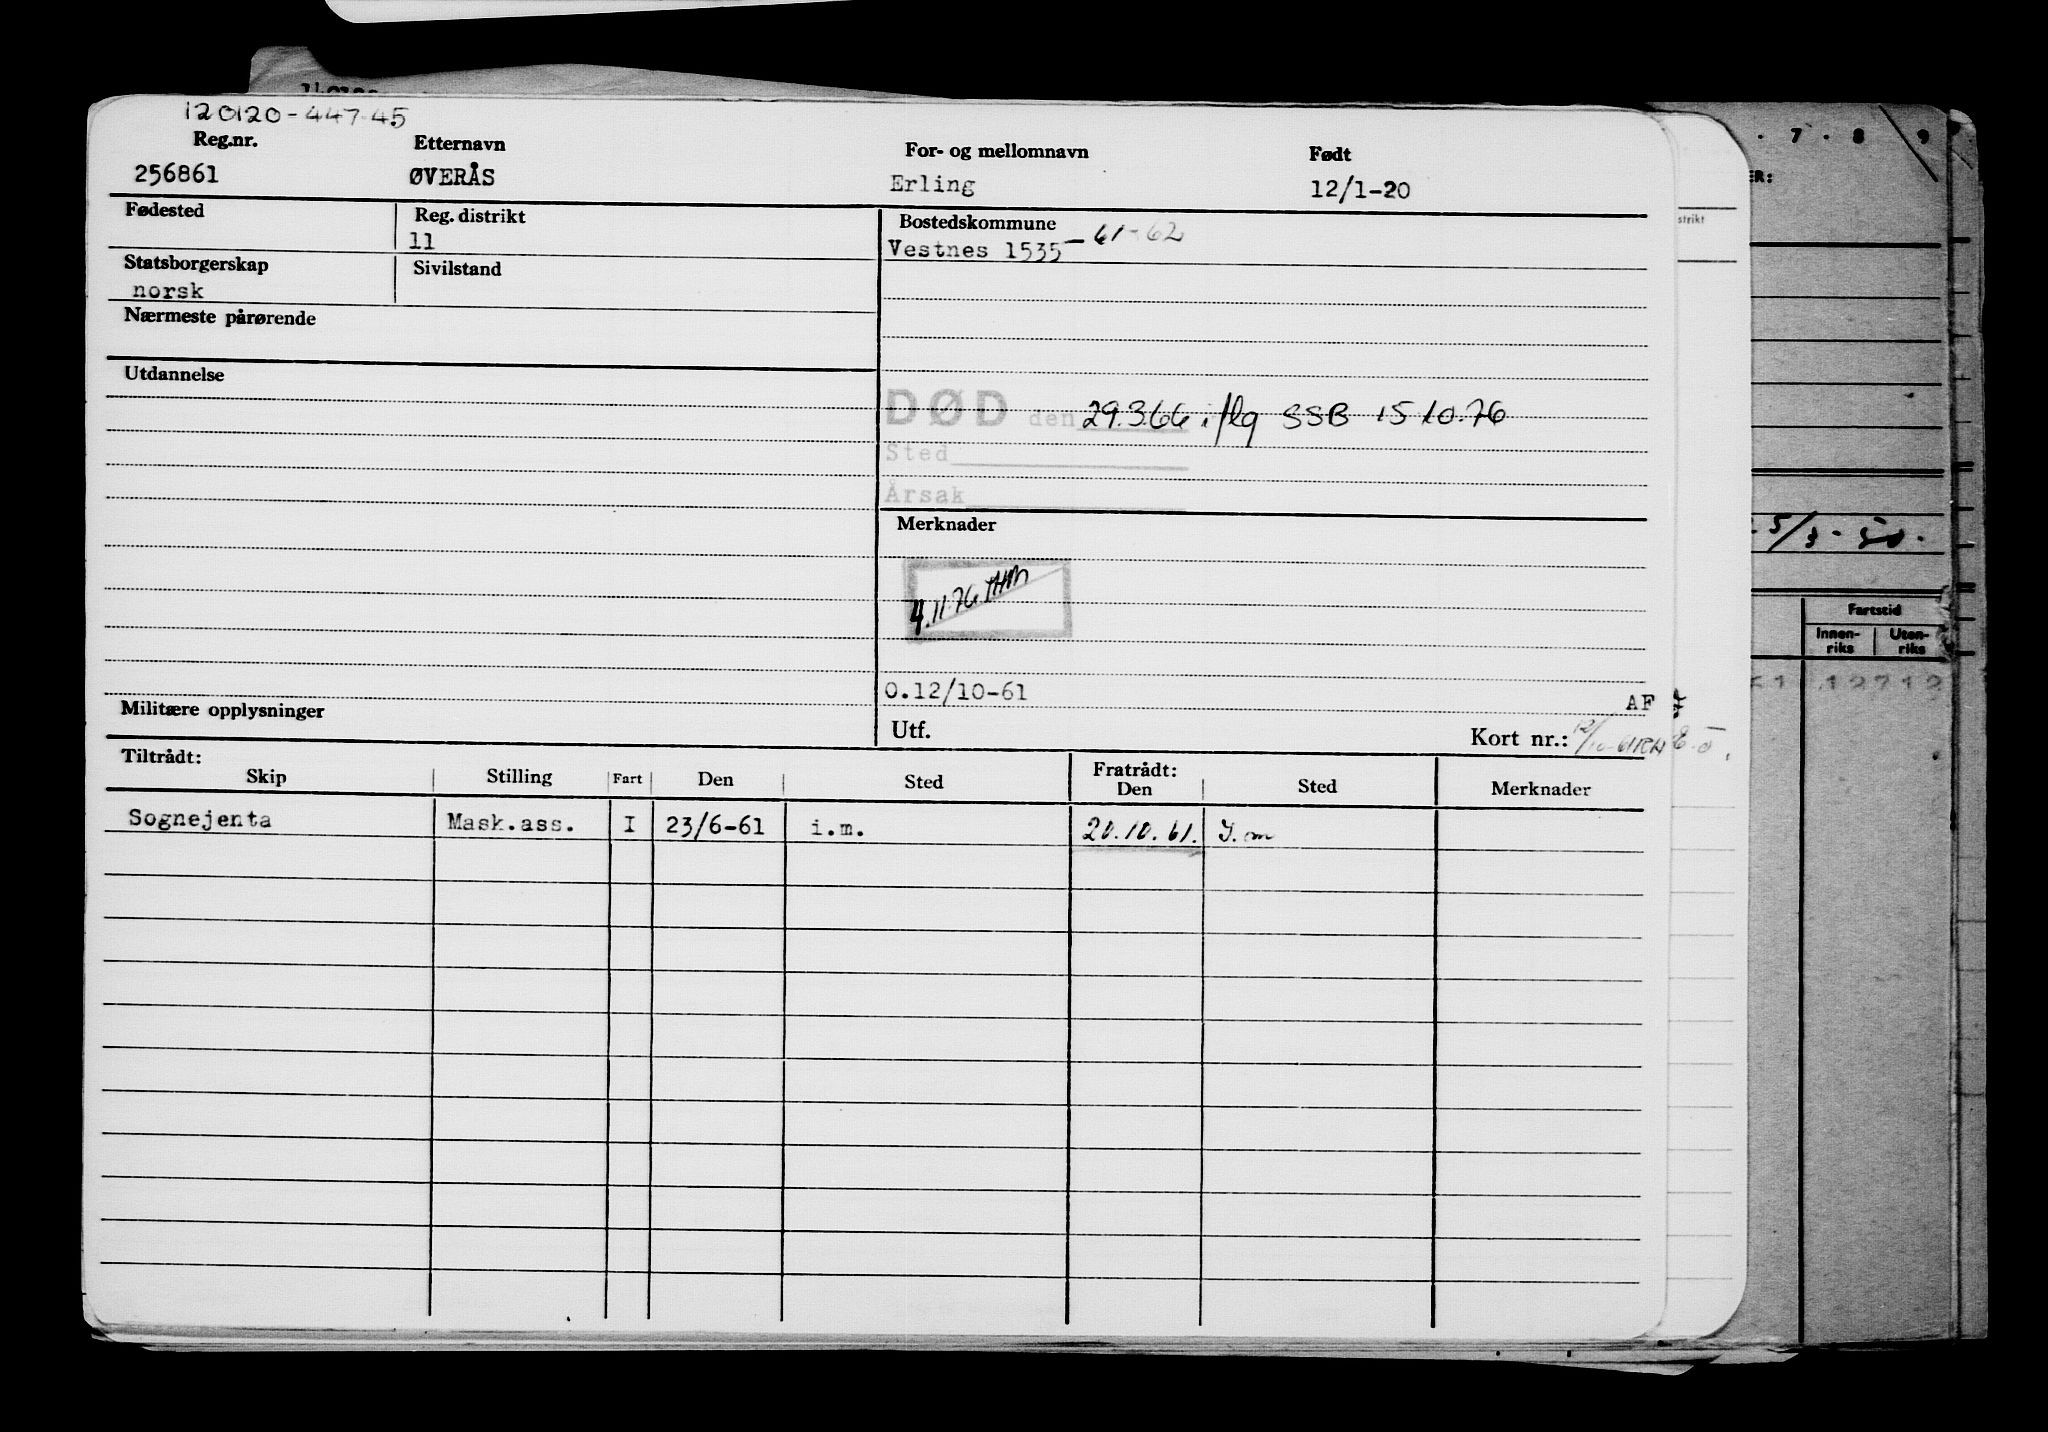 120120-44745
Reg.nr. Etternavn For- og mellomnavn Født
256861 ØVERÅS Erling 12/1-20
Fødested Reg. distrikt Bostedskommune
11 Vestnes 1535 - 61-62
Statsborgerskap Sivilstand
norsk
Nærmeste pårørende
Utdannelse
DØD den 29.3.66 iflg SSB 15 10.76
Sted
Årsak
Merknader
4.11.76 THM
O.12/10-61 AF
Militære opplysninger Utf. Kort nr.:
Tiltrådt: Fratrådt:
Skip Stilling Fart Den Sted Den Sted Merknader
Sognejenta Mask.ass. I 23/6-61 i.m. 20.10.61. I.m
7 · 8 9
ER:
strikt
5/3-50.
Fartstid
Innen-riks Uten-riks